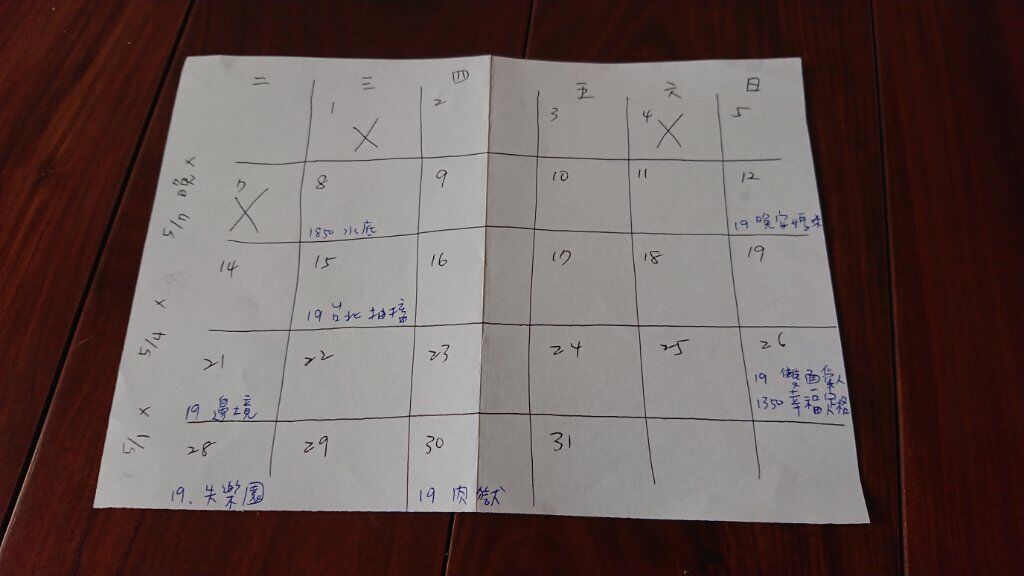 二 三 四 五 六 日
1 2 3 4 5
X X
7 8 9 10 11 12
X
1850 水底 19 晚安媽
14 15 16 17 18 19
19 台北抽搐
21 22 23 24 25 26
19 雙面
19 邊境 1350 幸福定格
28 29 30 31
19. 失樂園 19 肉獄
5/7 晚 x
5/4 x
5/1 x